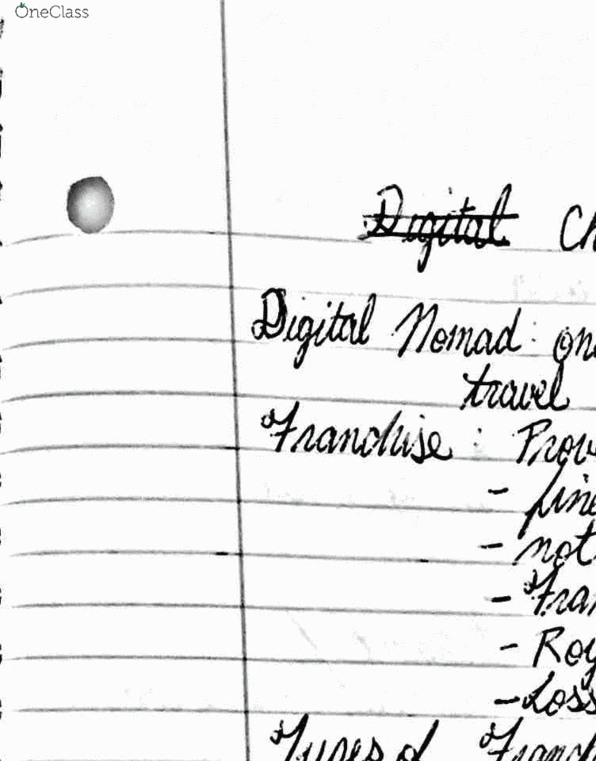 OneClass
Digital Ch
Digital Nomad: one
travel
Franchise: Prov
- fine
- not
- Fran
- Roy
- Loss
Types of Franch